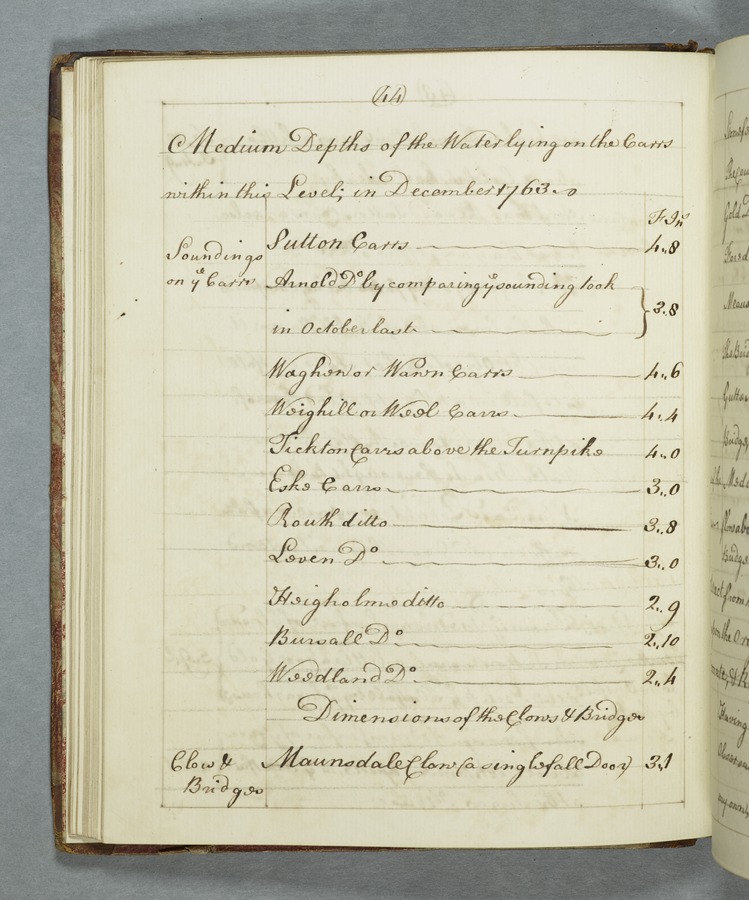 (44)
Medium Depths of the Water lying on the Carrs
within this Level; in December 1763.
F In.s
Soundings on ye Carrs
Sutton Carrs 4,,8
Arnold Do by comparing ye sounding took
in October last 3.8
Waghen or Wawn Carrs 4,,6
Weighill or Weel Carrs 4,,4
Tickton Carrs above the Turnpike 4,,0
Eske Carrs 3,,0
Routh ditto 3,,8
Leven Do 3,,0
Heigholme ditto 2,,9
Bursall Do 2,,10
Weedland Do 2,,4
Dimensions of the Clows & Bridges
Clow &
Bridges
Maunsdale Clow (a single fall Door) 3,,1